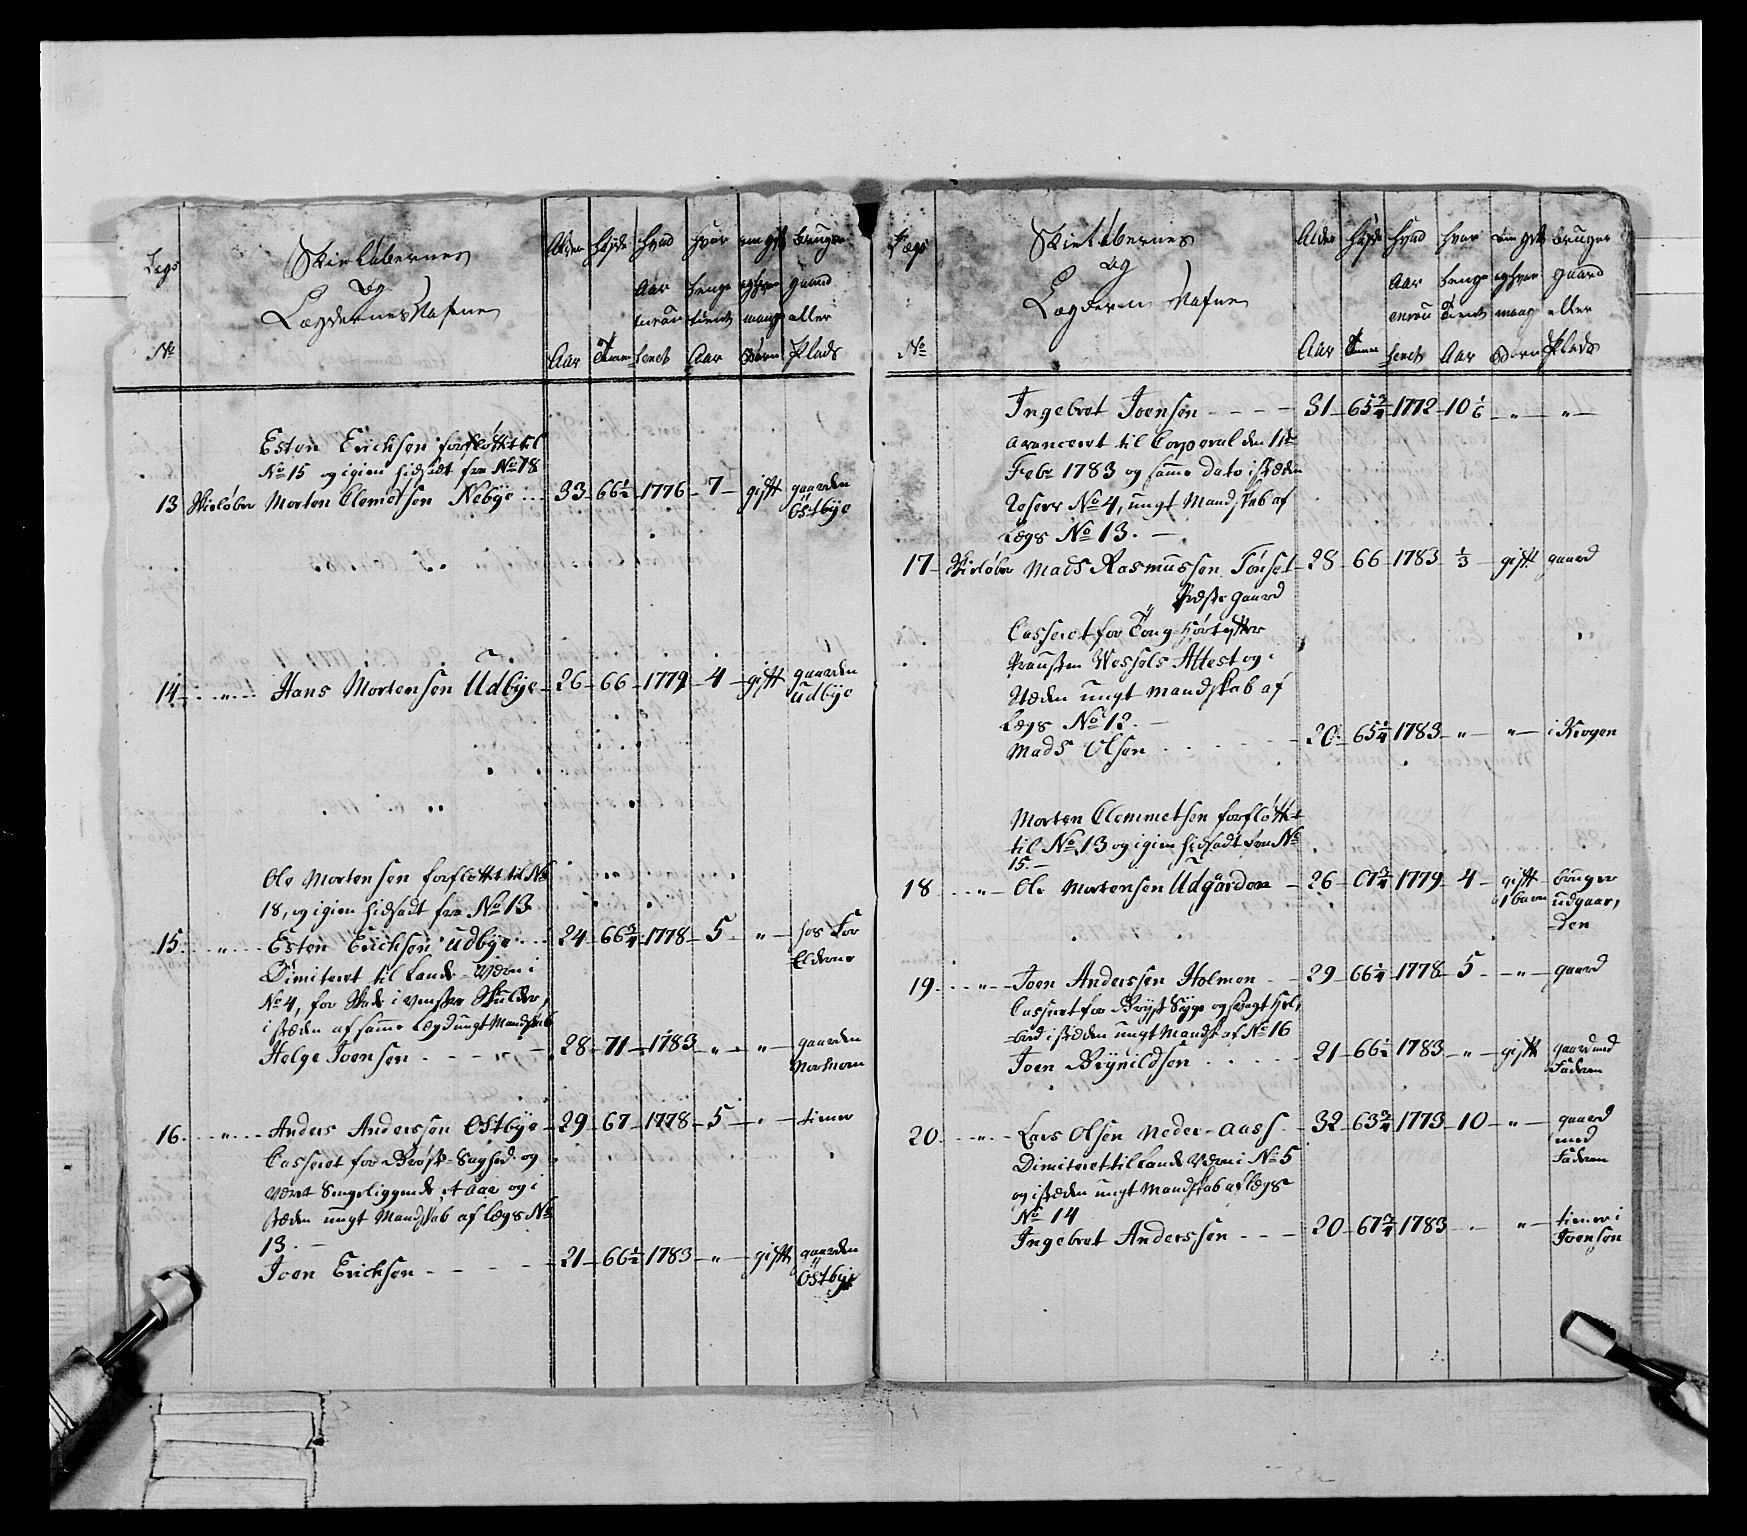 Legs
No
Skieløbernes
og
Lægdernes Nafne
Alder
Aar
Høyde
Tomer
Hvad
Aar
enrou
leret
Hvor
lenge
tient
Aar
om gift
og hvor
mange
Børn
bruger
gaard
eller
Plads
Esten Ericksen forflöttet til
No 15 og igien hidsadt fra No 18
13 Skieløber Morten Clemetsen Nebye 33 66½ 1776 7 gift gaarden
Östbye
14 " Hans Mortensen Udbye 26 66 1779 4 gift gaarden
Udbye
Ole Mortensen forflöttet til No
18, og igien hidsadt fra No 13
15 " Esten Ericksen Udbye 24 66¾ 1778 5 " hos For
Elderne
Dimiteret til Lands-Værn i
No 4, for Skade i venstre Skulder,
i stæden af samme Lægd ungt Mandskab
Helge Joensen 28 71 1783 " " gaarden
16 " Anders Andersen Östbye 29 67 1778 5 " tiener
Casseret for Bröst-Svaghed og
været Sengeliggende et Aar og i
stæden ungt Mandskab af Lægs No
13.
Joen Ericksen 21 66½ 1783 " gift gaarden
Östbye
Lægs
No
Skieløbernes
og
Lægdernes Nafne
Alder
Aar
Høyde
Tomer
Hvad
Aar
enrou
leret
Hvor
lenge
tient
Aar
om gift
og hvor
mange
Børn
bruger
gaard
eller
Plads
Ingebret Joensen 31 65¾ 1772 10⅙ " "
avanceret til Corporal den 1ste
Febr 1783 og samme dato i stæden
Reserv No 4, ungt Mandskab af
Lægs No 13.
17 Skieløber Mads Rasmussen Tönset 28 66 1783 ⅓ gift gaard
Præste Gaard
Casseret for Tung Hört efter
Provsten Wessels Attest og i
Stæden ungt Mandskab af
Lægs No 12.
Mads Olsen 20 65¼ 1783 " " i Krogen
Morten Clemmetsen forflöttet
til No 13 og igien hidsadt fra No
15.
18 " Ole Mortensen Udgaarden 26 67¾ 1779 4 gift bruger
1 barn udgaar,
den
19 " Joen Andersen Holmen 29 66¼ 1778 5 " gaard
Casseret for Bryst Syge og svagt Hel,
bred i stæden ungt Mandsk af No 16
Joen Brynildsen 21 66½ 1783 " gift gaard med
Faderen
20 " Lars Olsen Neder-Aass 32 63¾ 1773 10 " gaard
med
Faderen
Dimiteret til Lands Værn i No 5
og i stæden ungt Mandskab af Lægs
No 14
Ingebret Anderssen 20 67¾ 1783 " " tiener i